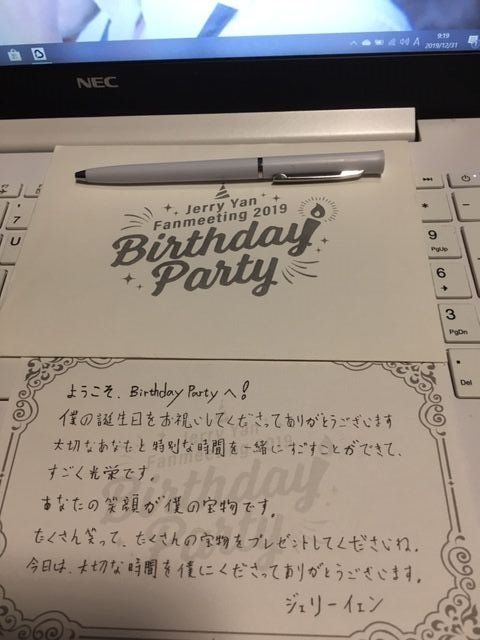 A 9:19
2019/12/31
NEC
7
U
*
-
9
PgUp
6
3
PgDn
Del
Jerry Yan
Fanmeeting 2019
Birthday
Party
ようこそ、Birthday Partyへ!
僕の誕生日をお祝いしてくださってありがとうございます
大切なあなたと特別な時間を一緒にすごすことができて、
すごく光栄です。
あなたの笑顔が僕の宝物です。
たくさん笑って、たくさんの宝物をプレゼントしてくださいね。
今日は、大切な時間を僕にくださってありがとうございます。
ジェリーイェン
Jerry Yan
Fanmeeting 2019
Birthday
Party